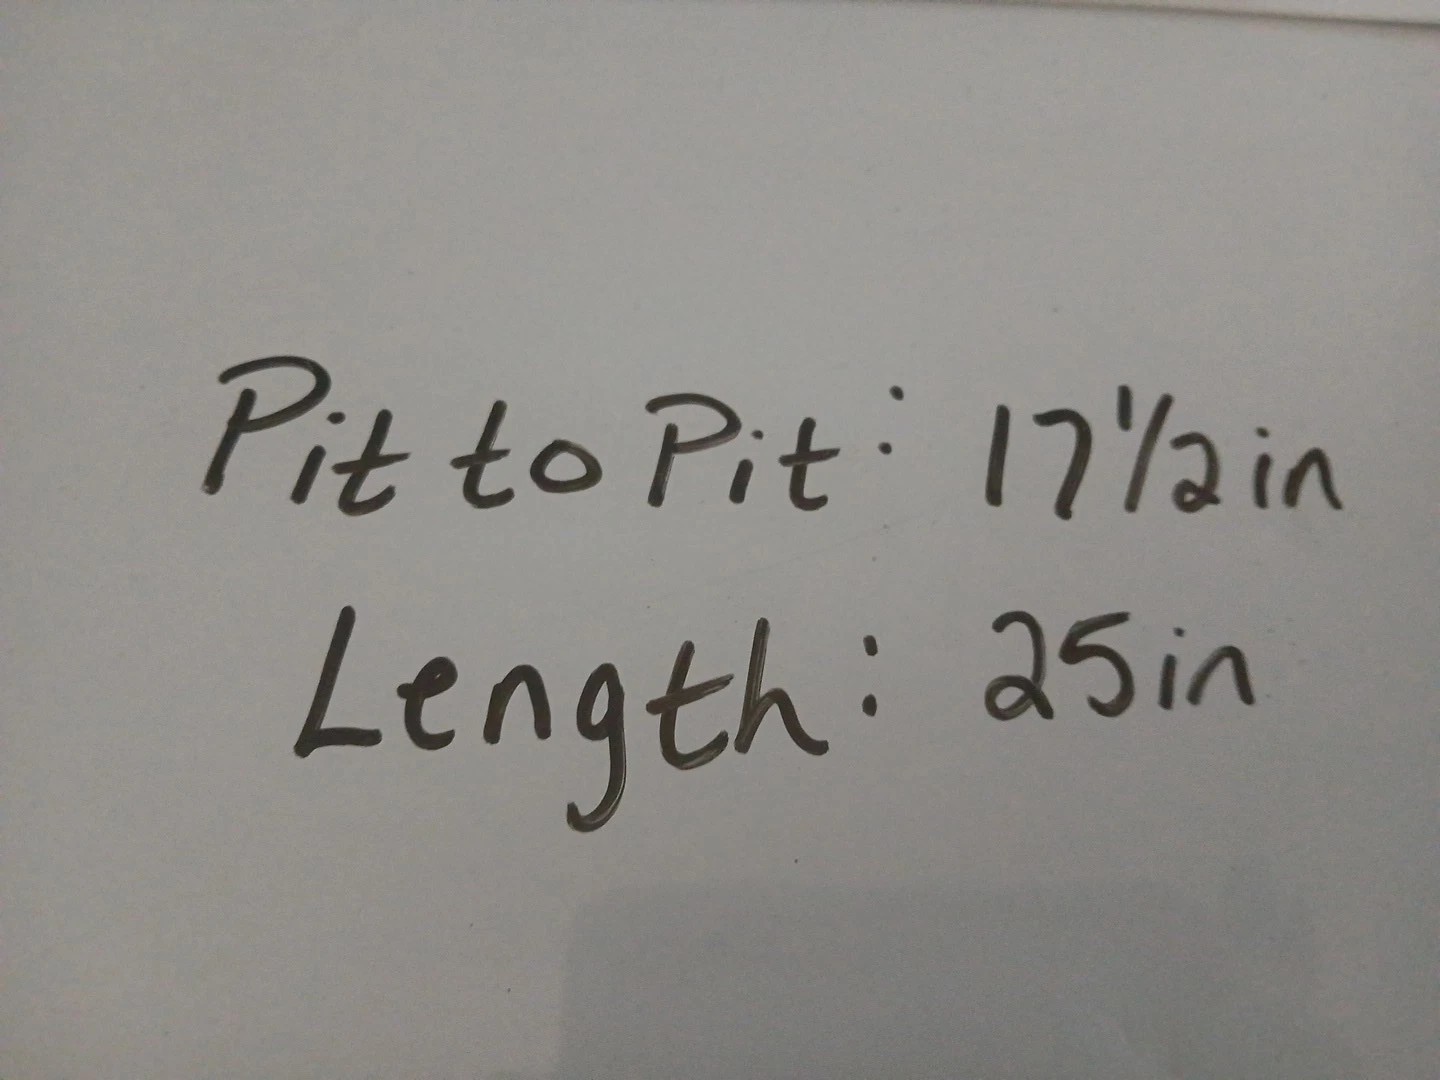 Pit to Pit: 17 1/2 in
Length: 25 in